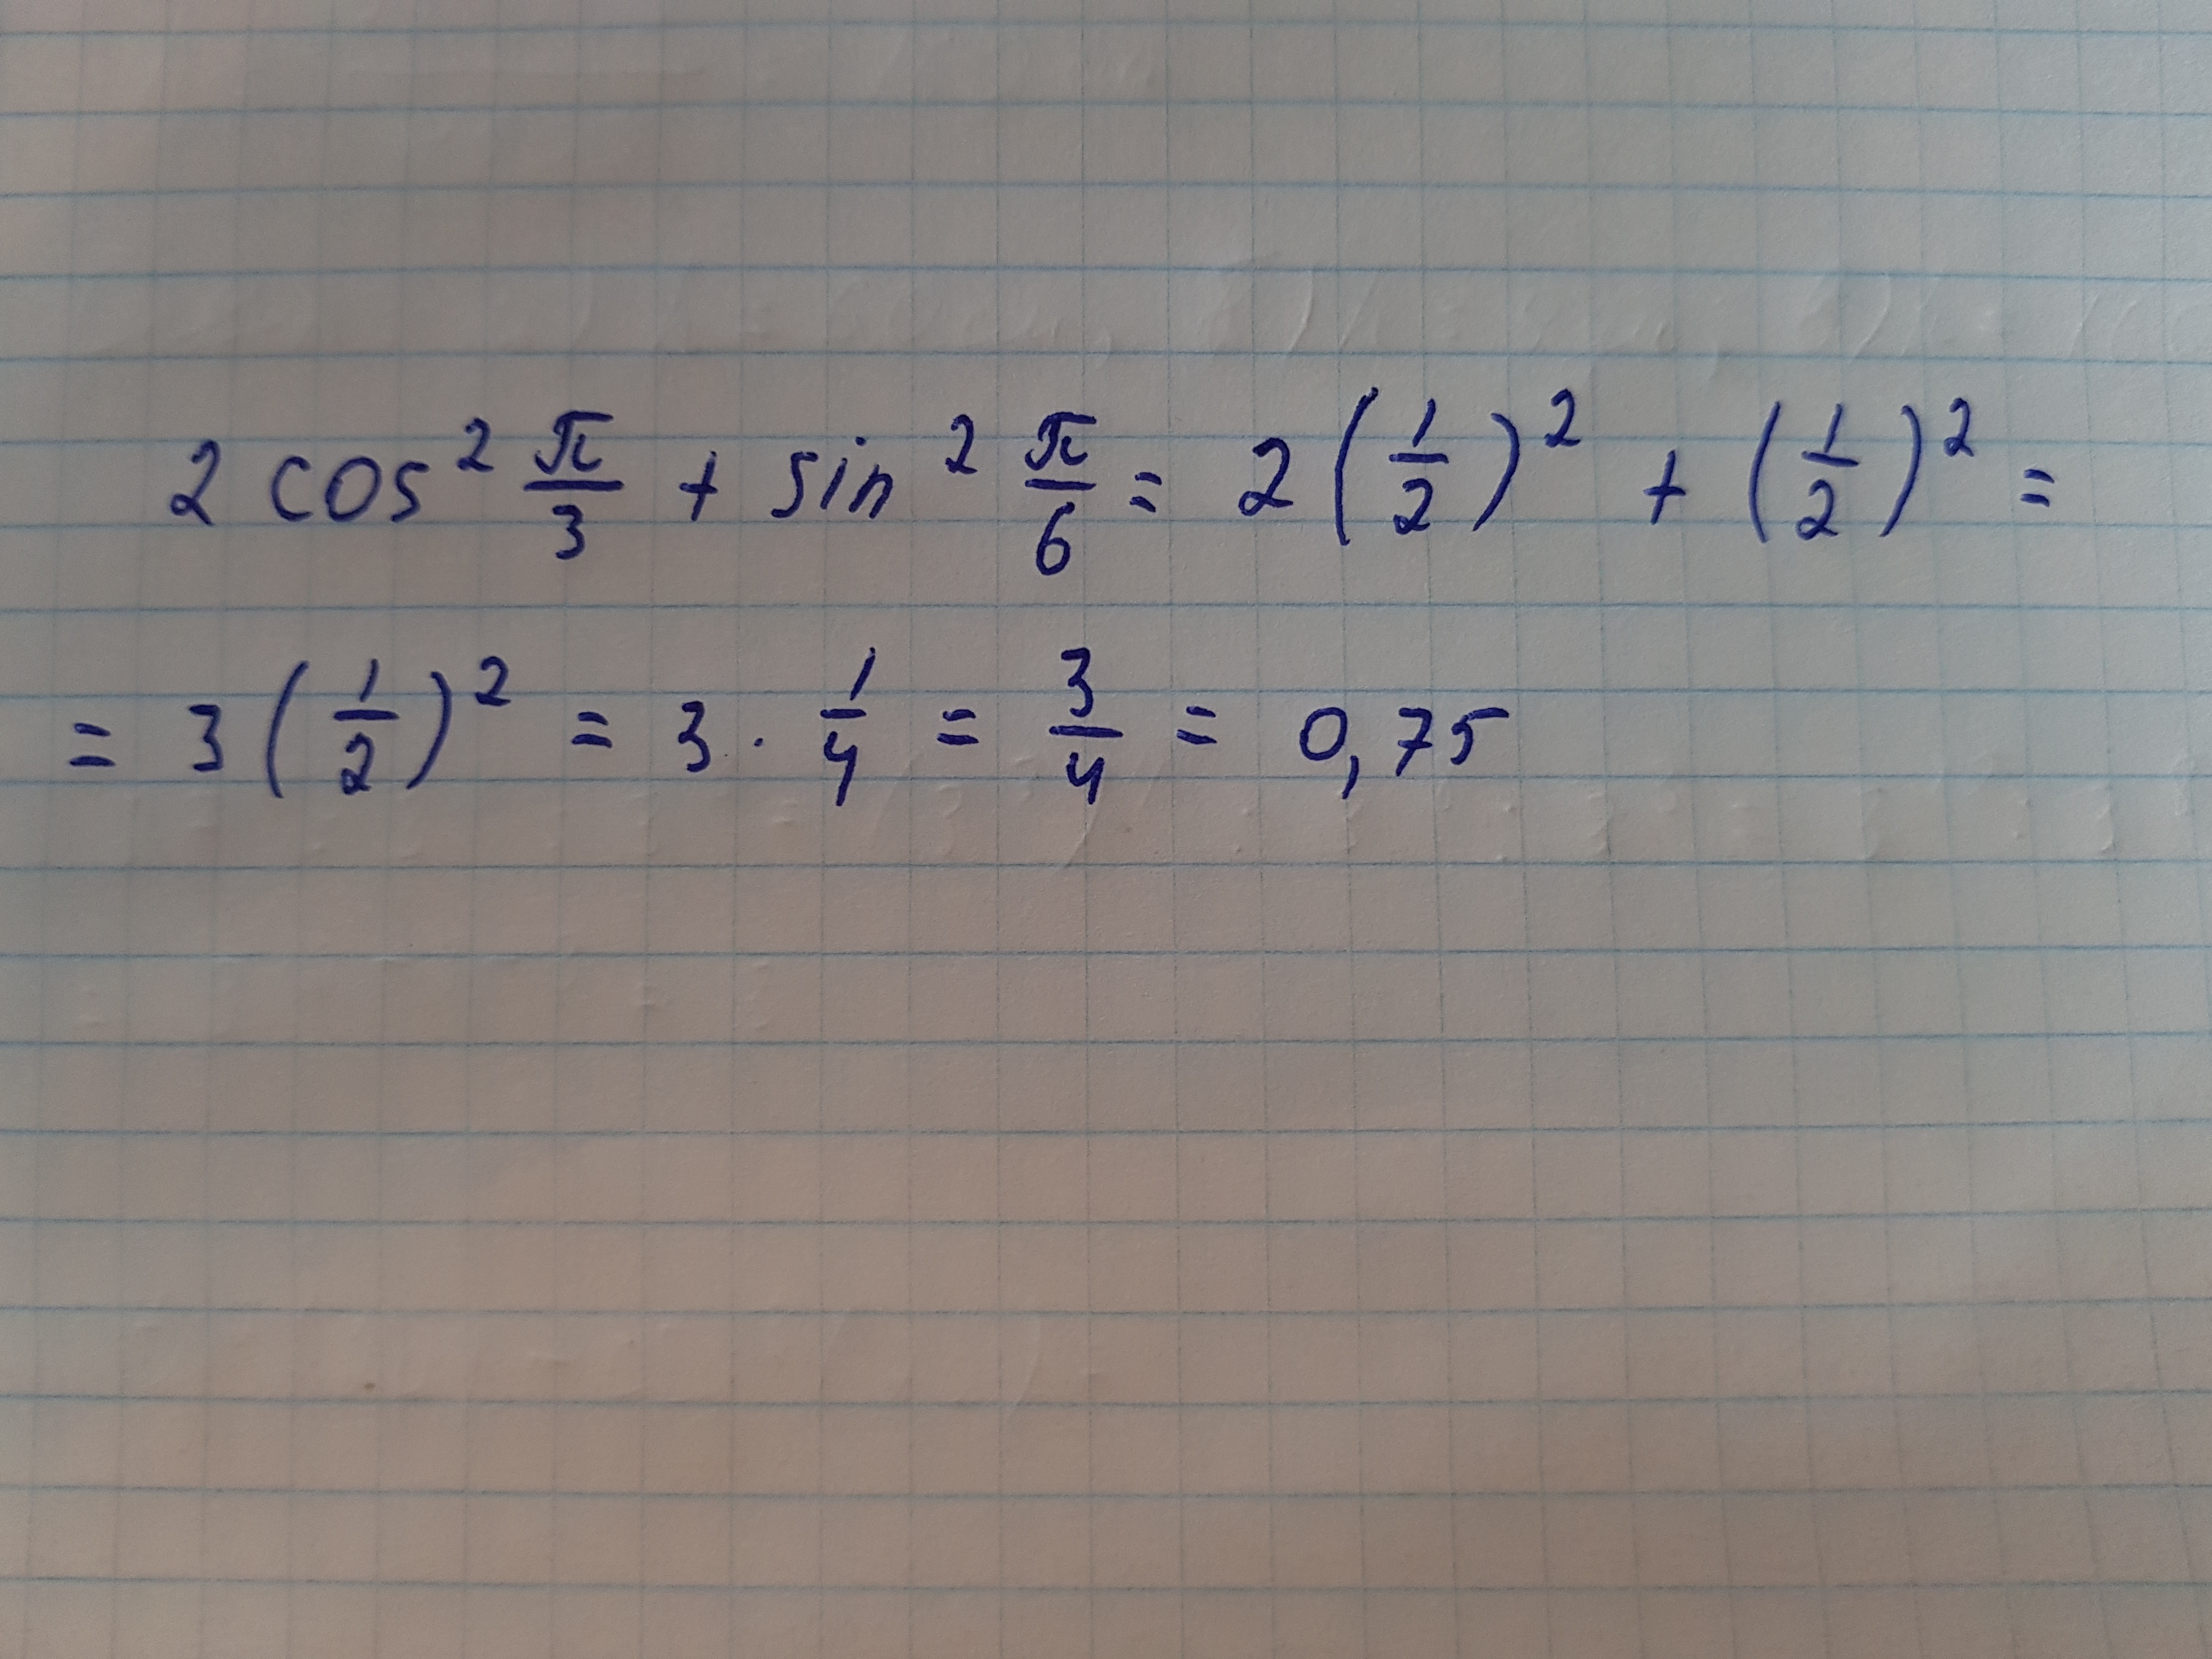 2 cos² π/3 + sin² π/6 = 2(1/2)² + (1/2)² =
= 3(1/2)² = 3 · 1/4 = 3/4 = 0,75